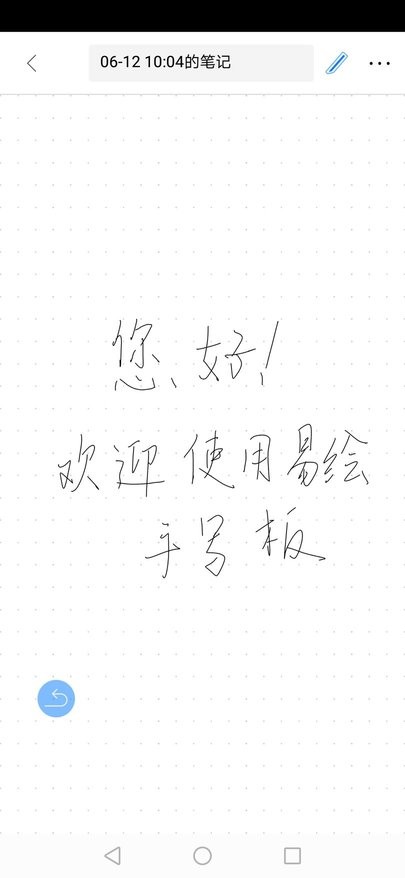 06-12 10:04的笔记
您好!
欢迎使用易绘
手写板